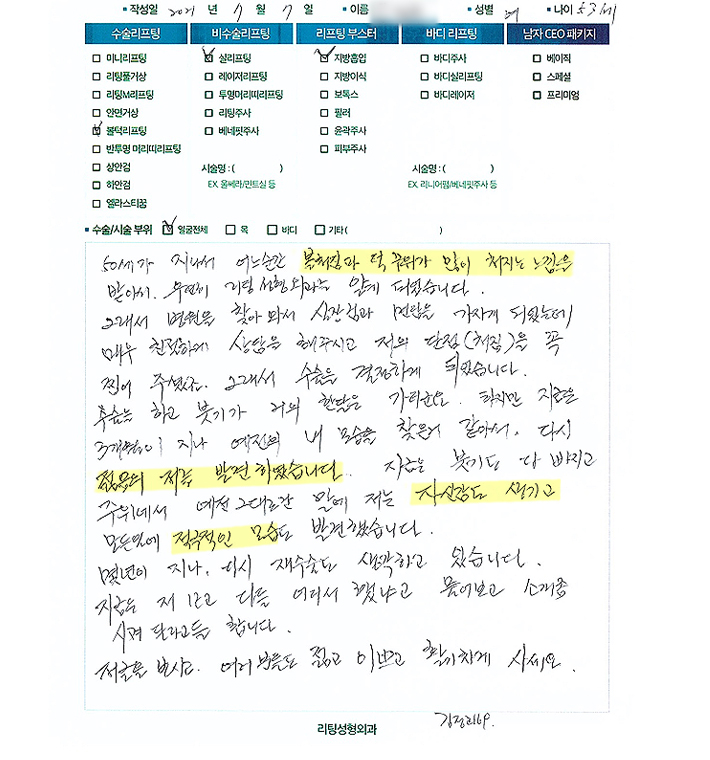 작성일 2021 년 7 월 7 일 이름 성별 여 나이 53세
수술리프팅 비수술리프팅 리프팅 부스터 바디 리프팅 남자 CEO 패키지
미니리프팅 실리프팅 지방흡입 바디주사 베이직
리팅풀거상 레이저리프팅 지방이식 바디실리프팅 스페셜
리팅M리프팅 투명머리띠리프팅 보톡스 바디레이저 프리미엄
안면거상 리팅주사 필러
볼턱리프팅 베네핏주사 윤곽주사
반투명 머리띠리프팅 피부주사
상안검 시술명 : ( ) 시술명 : ( )
하안검 EX. 울쎄라/민트실 등 EX. 리니어펌/베네핏주사 등
엘라스티꿈
수술/시술 부위 얼굴전체 목 바디 기타 ( )
50세가 지나서 어느순간 볼처짐과 턱 주위가 많이 처지는 느낌을
받아서. 우연히 리팅성형외과를 알게 되었습니다.
그래서 병원을 찾아 와서 상담을 가지게 되었는데
매우 친절하게 상담을 해주시고 저의 단점(처짐)을 꼭
찝어 주셨죠. 그래서 수술을 결정하게 되었습니다.
수술을 하고 붓기가 거의 한달은 가더군요. 하지만 지금은
3개월이 지나 예전의 내 모습을 찾은거 같아서. 다시
젊음의 저를 발견하였습니다.. 지금은 붓기도 다 빠지고
주위에서 예전 그대로란 말에 저는 자신감도 생기고
모든일에 적극적인 모습도 발견했습니다.
몇년이 지나. 다시 재수술도 생각하고 있습니다.
지금은 저 보고 다들 어디서 했냐고 물어보고 소개좀
시켜 달라고들 합니다.
저글을 보시고. 여러분들도 젊고 이쁘고 활기차게 사세요.
리팅성형외과